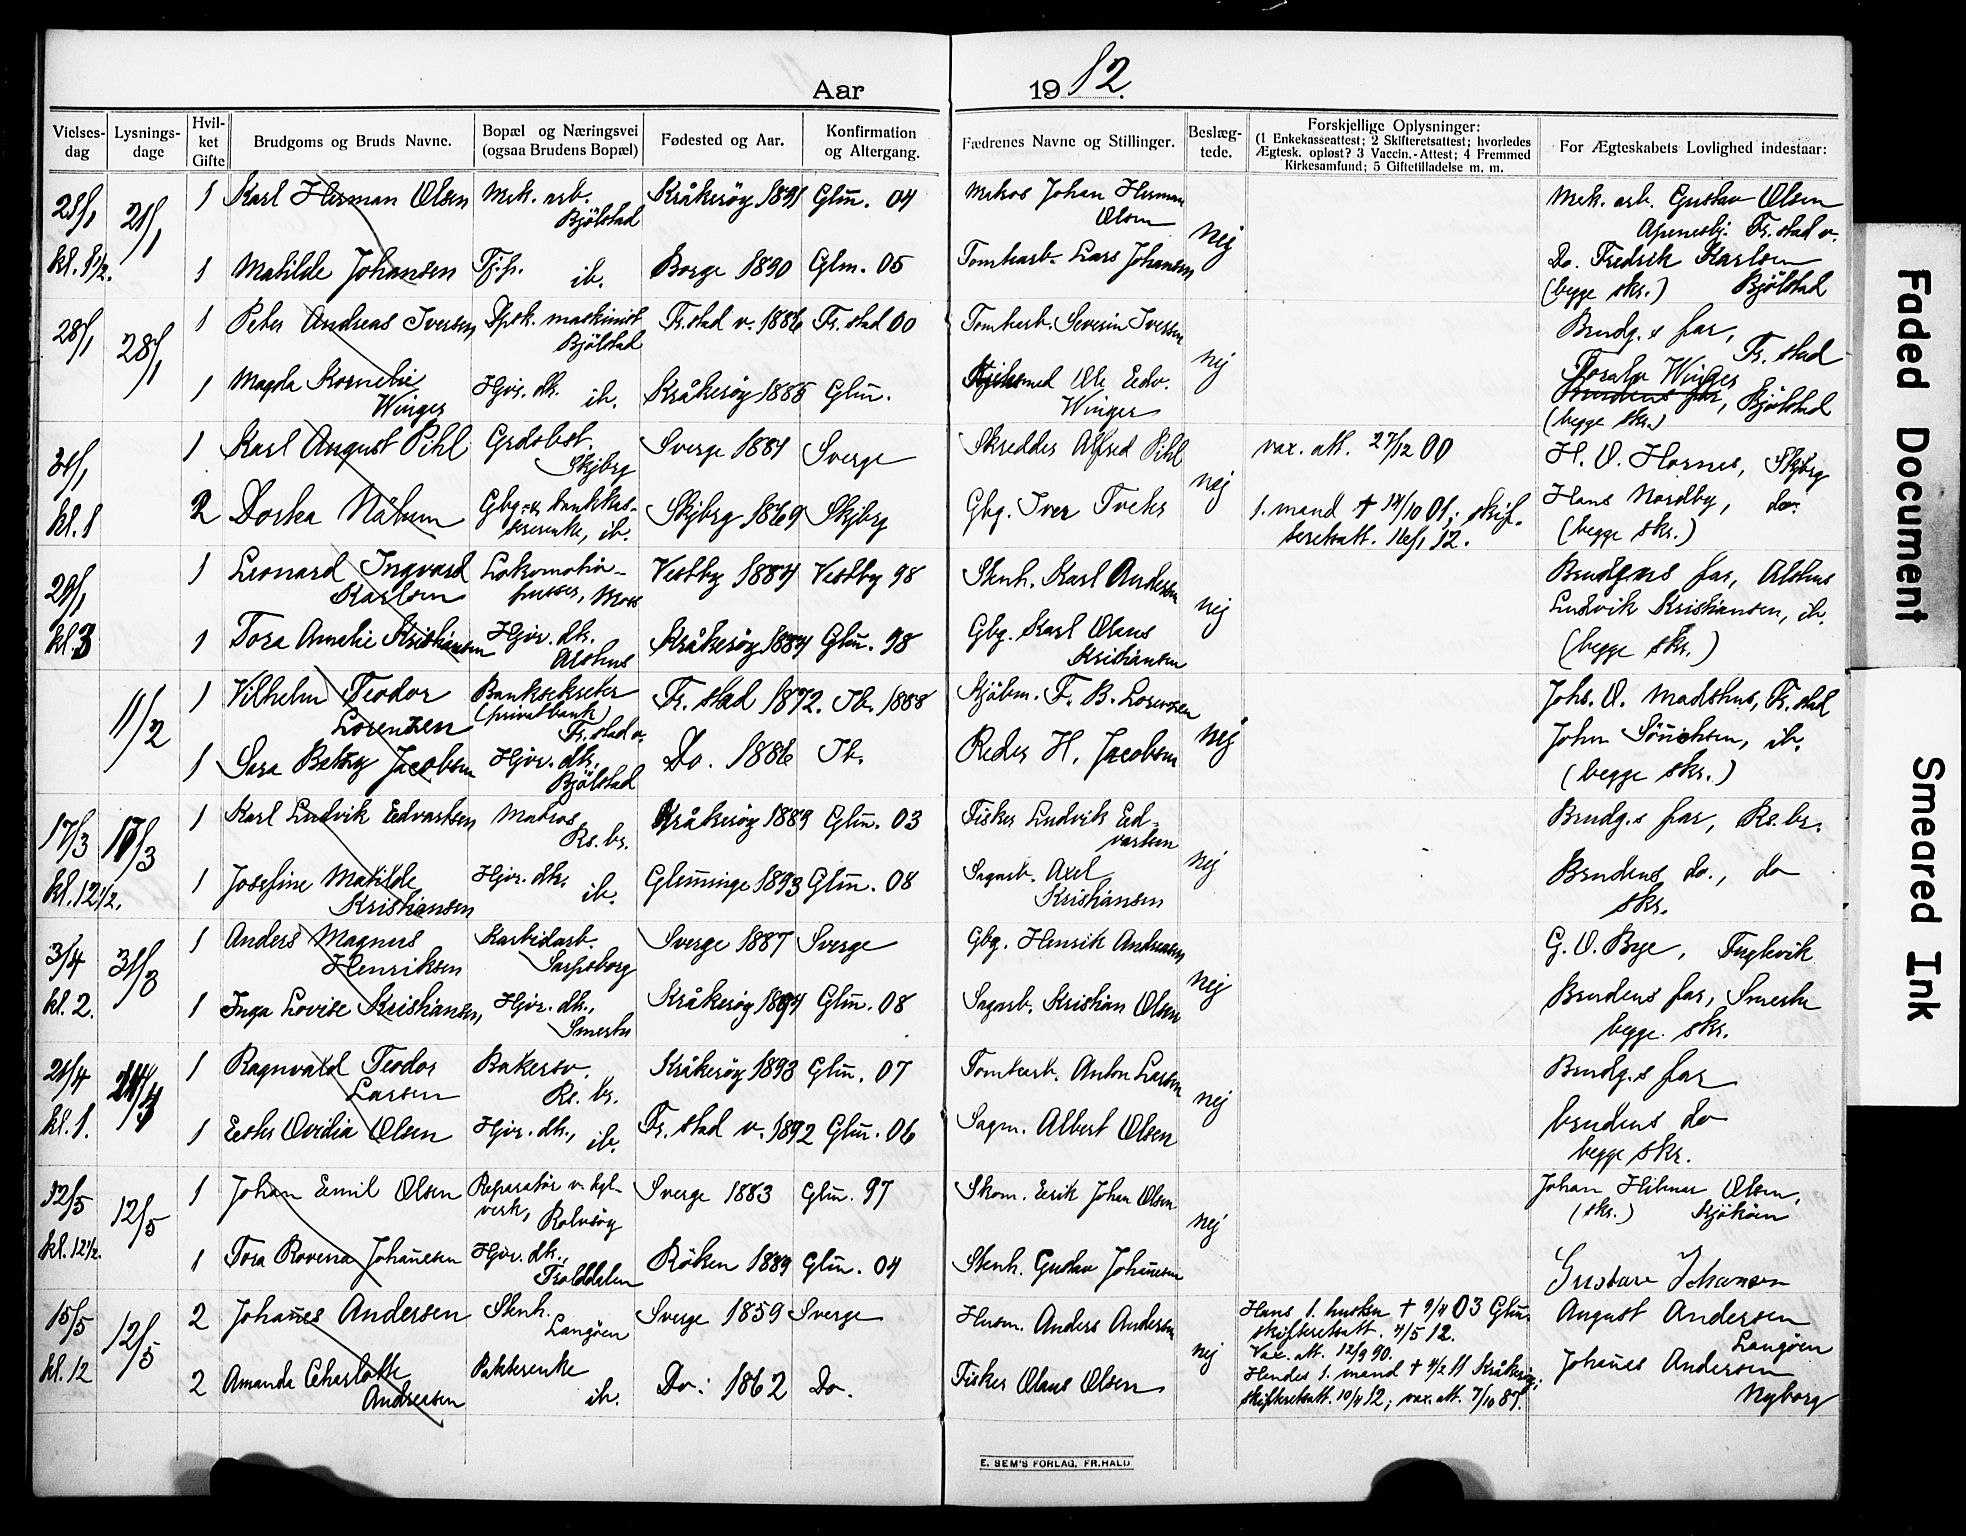 Aar 1912.
Vielses-dag
Lysnings-dage
Hvil-ket Gifte
Brudgoms og Bruds Navne.
Bopæl og Næringsvei (ogsaa Brudens Bopæl)
Fødested og Aar.
Konfirmation og Altergang.
Fædrenes Navne og Stillinger.
Beslæg-tede.
Forskjellige Oplysninger:
(1 Enkekasseattest; 2 Skifteretsattest; hvorledes
Ægtesk. opløst? 3 Vaccin.-Attest; 4 Fremmed
Kirkesamfund; 5 Giftetilladelse m. m.
For Ægteskabets Lovlighed indestaar:
21/1
1 Karl Herman Olsen Mek. arb. Bjölstad Kråkeröy 1891 Glm̄. 04 Johan Herman Olsen nej Mek. arb. Gustav Olsen
Fr.stad v.
1 Matilde Johansen Tj.p. ib. Borge 1890 Glm. 05 Tomtearb. Lars Johansen Do. Fredrik Karlsen
(begge skr.) Bjölstad
28/1 28/1
1 Peter Andreas Iversen, maskinist Bjölstad Fr.stad v. 1886 Fr.stad 00 Tomtearb. Severin Iversen nej Brudg.s far, Fr.stad
1 Magda Kornelie Winger Hjvr. dtr. ib. Kråkeröy 1885 Glm̄. Ole Edv. Winger Toralv Winger
Brudens far, Bjölstad
(begge skr.)
31/1 kl. 1
1 Karl August Pihl Grdsbst. Skjbrg Sverge 1881 Sverge Skredder Alfred Pihl nej vax. att. 27/12 00 H. O. Hornes, Skjbrg
2 Dorthea Gbg. Skjbrg 1869 Skjbrg Gbg. Iver Tveter 1. mand † 14/10 01; skif-
teretsatt. 12. Hans Nordby, do.
(begge skr.)
kl. 3
1 Leonard Ingvard Karlsen Lokomotiv-pusser, Moss Vestby 1884 Vestby 98 Stenh. Karl Andersen nej Brudens far, Alshus
Ludvik Kristiansen, ib.
1 Tora Amalie Kristiansen Hjvr. dtr. Alshus Kråkeröy 1884 Glm̄. 98 Gbg. Karl Olaus Kristiansen (begge skr.)
11/2
1 Vilhelm Teodor Lorenzen Banksekretær (privatbank) Fr.stad v. Fr.stad 1872. Ib. 1888 Kjöbm. F. B. Lorenzen nej Johs. O. Madshus, Fr.stad
1 Sara Betsy Jacobsen Hjvr. dtr. Bjölstad Do. 1886 Ib. Reder H. Jacobsen John Sönichsen, ib.
(begge skr.)
17/3 kl. 12 1/2. 17/3
1 Karl Ludvik Edvartsen Matros Rs. br. Kråkeröy 1889 Glm̄. 03 Fisker Ludvik Ed-
vartsen nej Brudg.s far, Rs. br.
1 Josefine Matilde Kristiansen Hjvr. dtr. ib. Glem̄inge 1893 Glm̄. 08 Sagarb. Axel Kristiansen Brudens do., do
skr.
3/4 kl. 2. 31/3
1 Anders Magnus Henriksen Karbidarb. Sarpsborg Sverge 1887 Sverge Gbg. Henrik Andreasen nej G. O. Bye, Fuglevik
1 Inga Lovise Kristiansen, Hjvr. dtr., Smertu Kråkeröy 1894 Glm̄. 08 Sagarb. Kristian Olsen Brudens far, Smertu
begge skr.
21/4 kl. 1.
1 Ragnvald Teodor Larsen Bakersv. Rs. br. Kråkeröy 1893 Glm̄. 07 Tomtearb. Anton Larsen nej Brudg.s far
1 Ester Ovidia Olsen Hjvr. dtr., ib. Fr.stad v. 1892 Glm̄. 06 Sagm. Albert Olsen brudens do
begge skr.
12/5 kl. 12 1/2. 12/5
1 Johan Emil Olsen Reparatör v. tgl-verk, Rolvsöy Sverge 1883 Glm̄. 97 Skom. Erik Johan Olsen nej Johan Hilmar Olsen,
(skr.) Kjököen
1 Tora Rovena Johan̄esen Hjvr. dtr., Trolldalen Röken 1889 Glm̄. 04 Stenh. Gustav Johan̄esen Gustave Johansen
15/5 kl. 12 12/5
2 Johan̄es Andersen Stenh. Langöen Sverge 1859 Sverge Husm. Anders Andersen nej Hans 1. hustru † 9/4 03 Glm̄.
skifteretsatt. 4/5 12.
Vax. att. 12/9 90. August Andersen
Langöen
2 Amanda Charlotte Andreasen ib. Do. 1862 Do. Fisker Olaus Olsen Hendes 1. mand † 4/2 11 Kråkeröy;
skifteretsatt. 10/4 12; vax. att. 7/10 87. Johan̄es Andersen
Nyborg
E. SEM'S FORLAG, FR.HALD
Faded Document
Smeared Ink